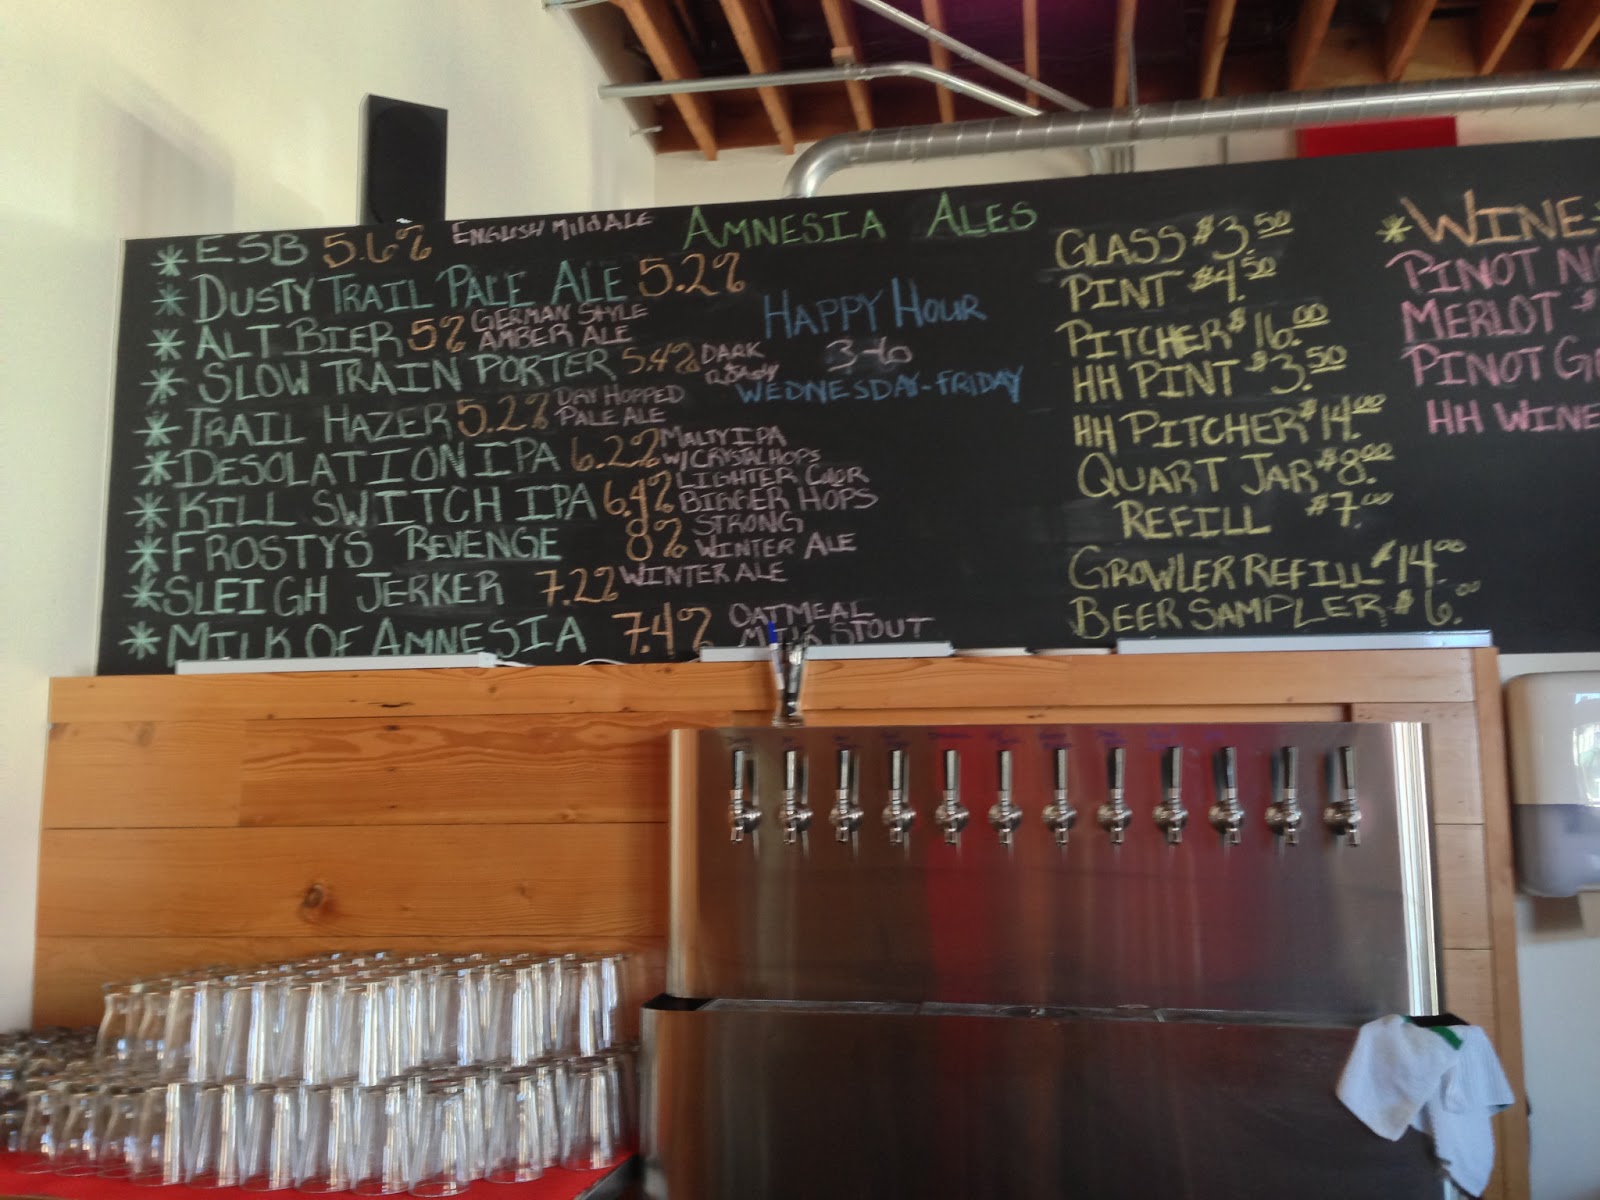 * ESB 5.6% ENGLISH MILD ALE
* DUSTY TRAIL PALE ALE 5.2%
* ALT BIER 5% GERMAN STYLE
AMBER ALE
* SLOW TRAIN PORTER 5.4% DARK
* TRAIL HAZER 5.2% DRY HOPPED
PALE ALE
* DESOLATION IPA 6.2% MALTY IPA
W/ CRYSTAL HOPS
* KILL SWITCH IPA 6.4% LIGHTER COLOR
BIGGER HOPS
* FROSTYS REVENGE 8% STRONG
WINTER ALE
* SLEIGH JERKER 7.2% WINTER ALE
* MILK OF AMNESIA 7.4% OATMEAL
MILK STOUT
AMNESIA ALES
HAPPY HOUR
3-6
WEDNESDAY-FRIDAY
GLASS $3.50
PINT $4.50
PITCHER $16.00
HH PINT $3.50
HH PITCHER $14.00
QUART JAR $8.00
REFILL $7.00
GROWLER REFILL $14.00
BEER SAMPLER $6.00
* WINE
PINOT
MERLOT $
PINOT
HH WINE